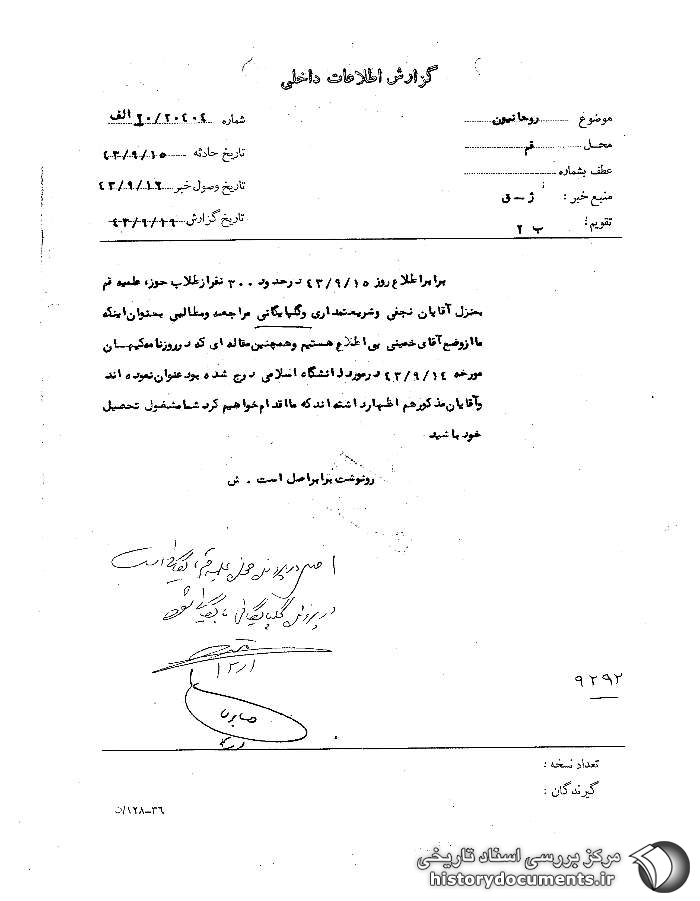 گزارش اطلاعات داخلی
موضوع روحانیون
شماره ۲۰/۲۰۴۰۴ الف
محل قم
تاریخ حادثه ۴۳/۹/۱۵
عطف بشماره
تاریخ وصول خبر ۴۳/۹/۱۶
منبع خبر : ژ - ق
تاریخ گزارش ۴۳/۹/۱۹
تقویم : ب ۲
برابر اطلاع روز ۴۳/۹/۱۵ در حدود ۳۰۰ نفر از طلاب حوزه علمیه قم
بمنزل آقایان نجفی و شریعتمداری و گلپایگانی مراجعه و مطالبی بعنوان اینکه
ما از وضع آقای خمینی بی اطلاع هستیم و همچنین مقاله ای که در روزنامه کیهان
مورخه ۴۳/۹/۱۴ در مورد دانشگاه اسلامی درج شده بود عنوان نموده اند
و آقایان مذکور هم اظهار داشته اند که ما اقدام خواهیم کرد شما مشغول تحصیل
خود باشید
رونوشت برابر اصل است . ش
در پرونده گلپایگانی بایگانی شود
۹۲۹۲
تعداد نسخه :
گیرندگان :
۳۶-۱۲۸/ن
مرکز بررسی اسناد تاریخی
historydocuments.ir